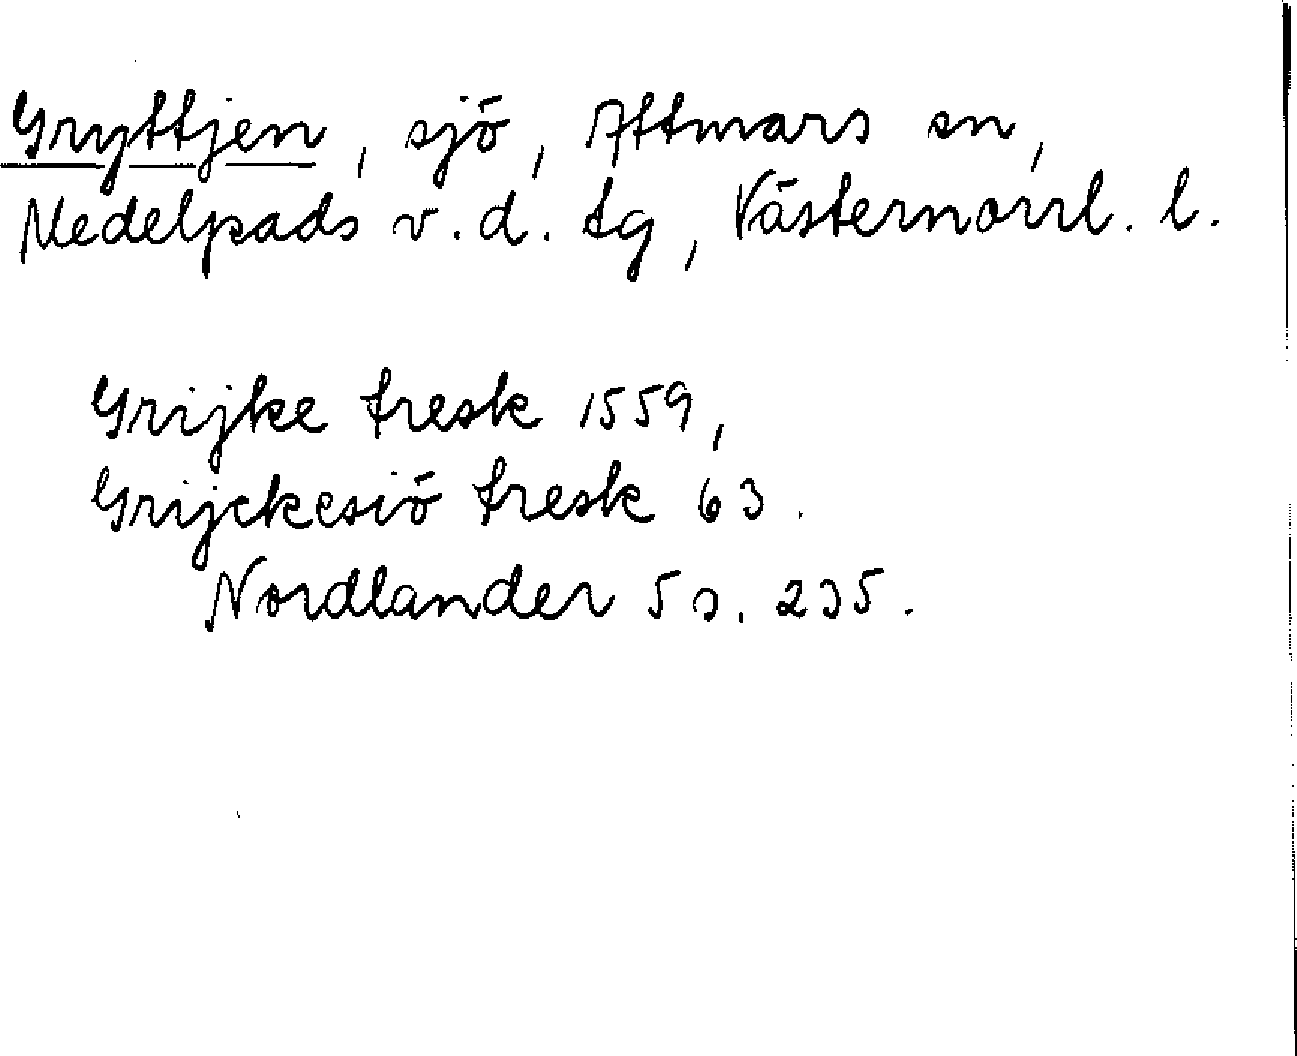 Gryttjen, sjö, Attmars sn,
Medelpads v. d. tg, Västernorrl. l.
Grijke tresk 1559,
Grijckesiö tresk 63.
Nordlander 5 s. 235.